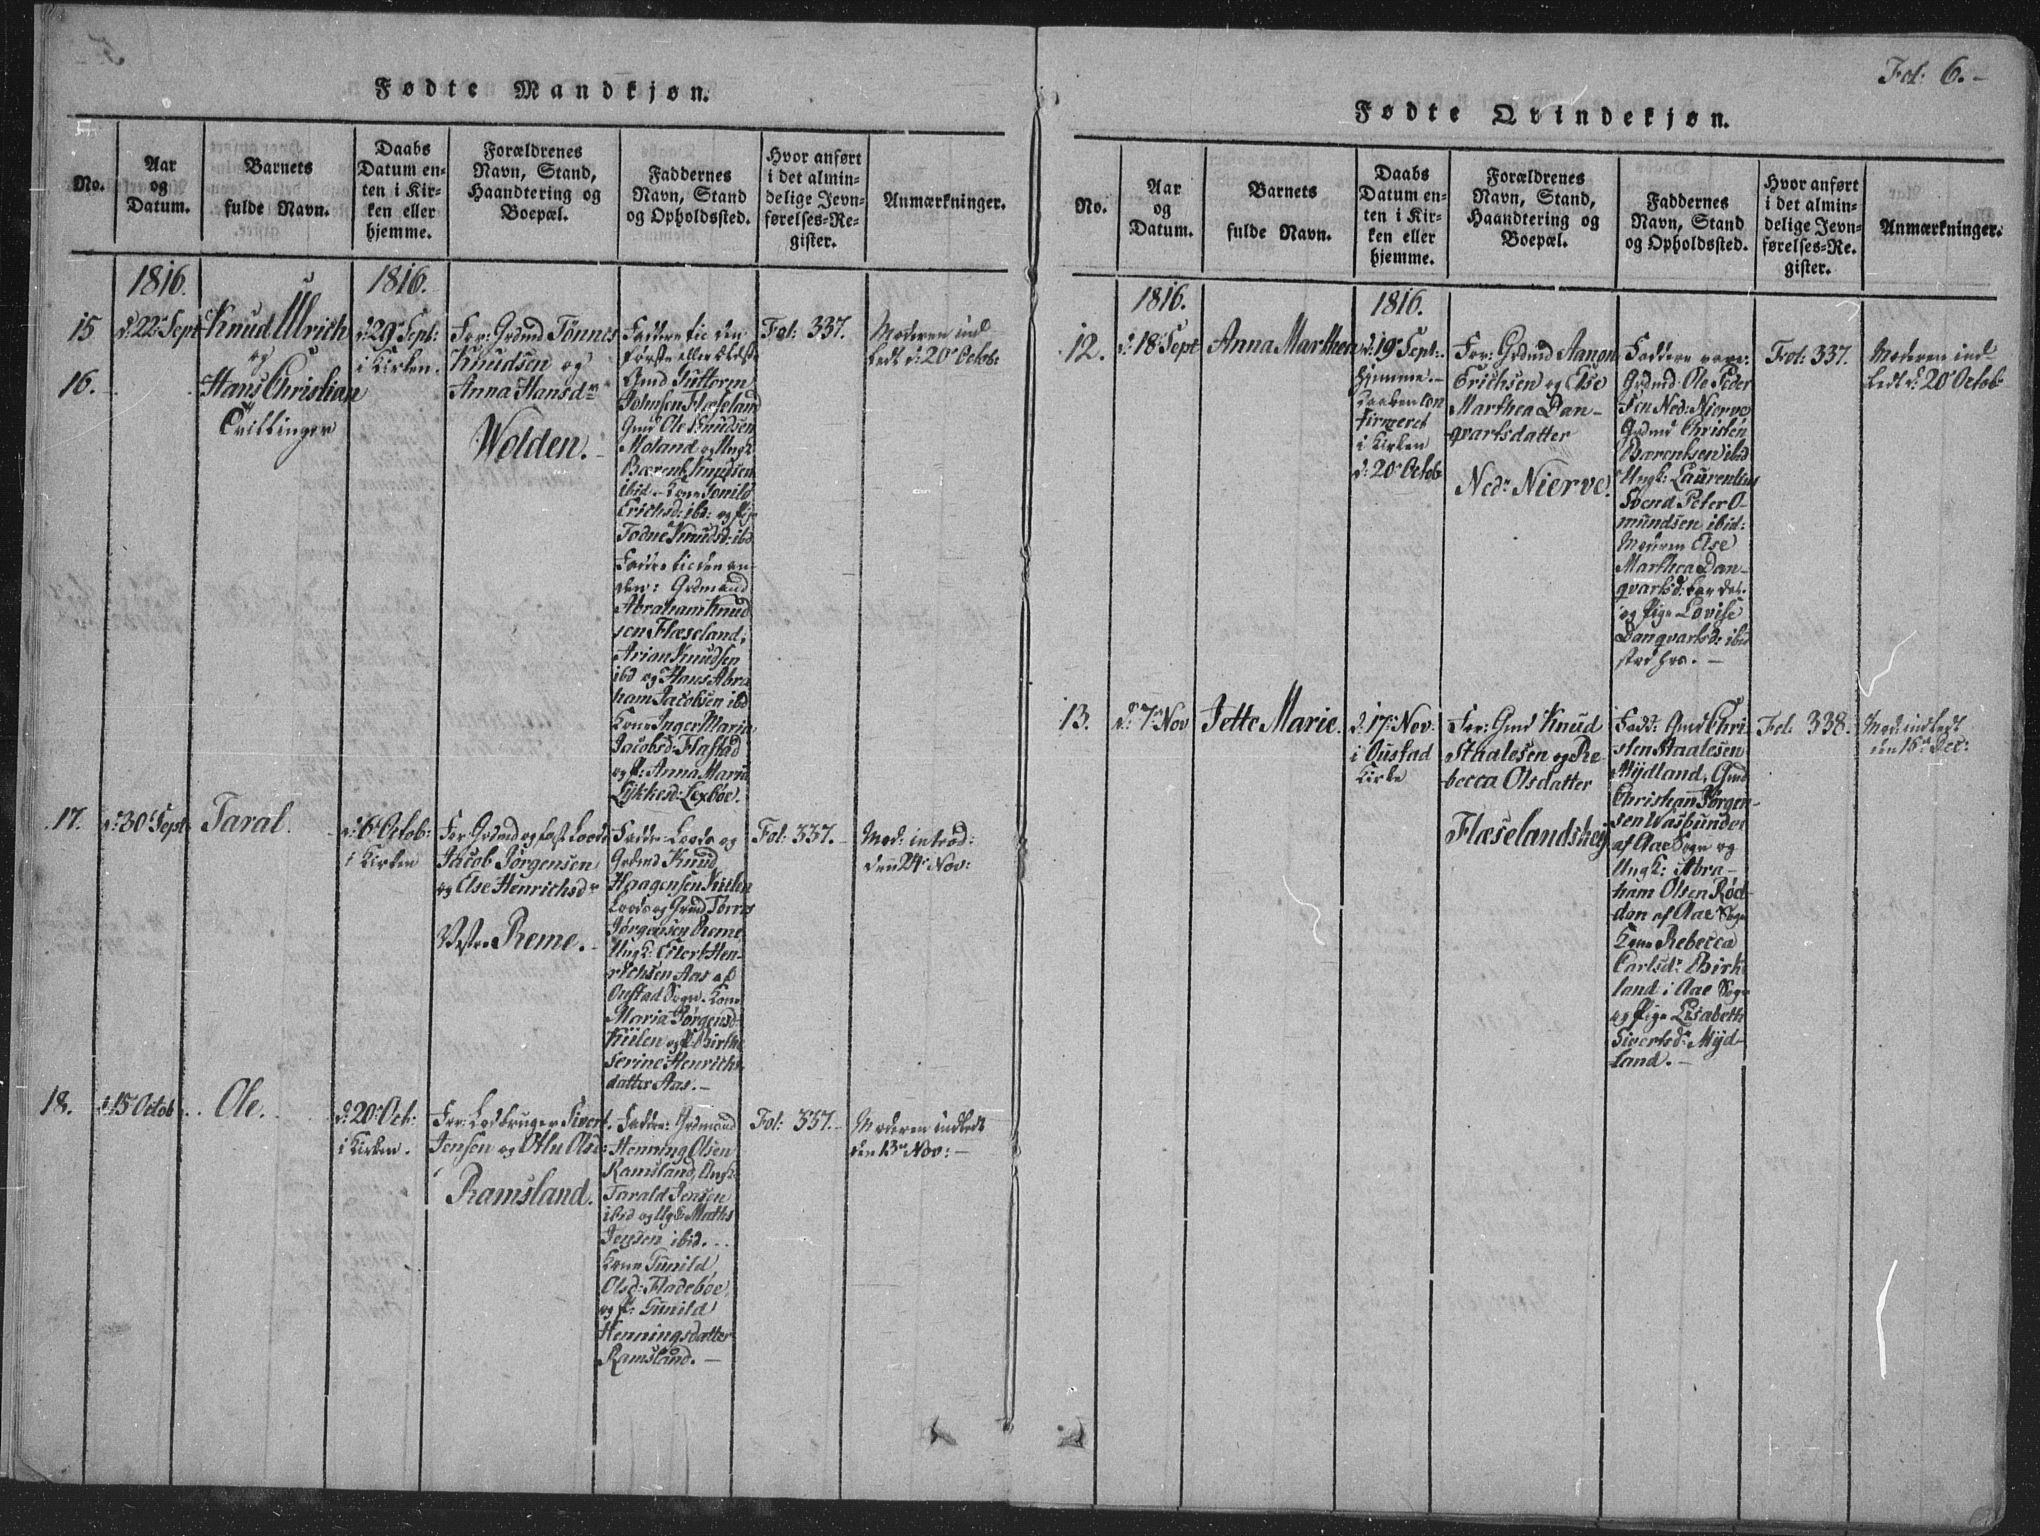 Fødte Mandkjøn.
No.
Aar
og
Datum.
Barnets
fulde Navn.
Daabs
Datum en-
ten i Kir-
ken eller
hjemme.
Forældrenes
Navn, Stand,
Haandtering og
Boepæl.
Faddernes
Navn, Stand
og Opholdssted.
Hvor anført
i det almin-
delige Jevn-
førelses-Re-
gister.
Anmærkninger.
1816.
1816.
15
d: 22 Sept
Knud Ulrich
og
16.
Hans Christian
Tvillinger
d: 29 Sept:
i Kirken.
For: Grdmd Tönnes
Knudsen og
Anna Hansdr
Wolden.
Faddere til den
første eller ældste
Gmd Guttorm
Johnsen Flæseland
Gmd Ole Knudsen
Moland og Ungk:
Bærent Knudsen
ibid - Kone Gunild
Erichsd: ibd: og Pige
Todne Knudsd: ibd
Faddre til den an-
den: Grdmand
Abraham Knud
sen Flæseland,
Arian Knudsen
ibd og Hans Abra
ham Jacobsen ibd
Kone Inger Maria
Jacobsd: Flastad
og P: Anna Maria
Lykkesd: Lexbøe.
Fol: 337.
Moderen ind-
ledt d: 20 Octob:
17.
d: 30 Sept:
Taral.
d: 6 Octob:
i Kirken
For: Grdmd og fast Loods
Jacob Jørgensen
og Else Henrichsdr
Vestre Reme.
Faddr: Loods og
Grdmd Knud
Haagensen Kiilen
Loods og Grmd Tørres
Jørgensen Reme
Ungk: Eilert Hen-
richsen Aas af
Oustad Sogn. Kone
Maria Jørgensd:
Kiilen og P: Birthe
Serine Henrichs
datter Aas. -
Fol: 337. -
Mod: introd:
den 24 Nov:
18.
d: 15 Octob
Ole.
d: 20 Oct:
i Kirken.
For: Lodbruger Sivert
Jensen og Othu Olsd:
Ramsland.
Faddre: Grdmand
Henning Olsen
Ramsland, Ungk:
Tarald Jensen
ibid og Ugk Maths
Jensen ibid. -
Kone Gunild
Olsd: Fladebøe
og P: Gunild
Henningsdatter
Ramsland. -
Fol: 337. -
Moderen indledt
den 13 Nov: -
Fol: 6. -
Fødte Qvindekjøn.
No.
Aar
og
Datum.
Barnets
fulde Navn.
Daabs
Datum en-
ten i Kir-
ken eller
hjemme.
Forældrenes
Navn, Stand,
Haandtering og
Boepæl.
Faddernes
Navn, Stand
og Opholdssted.
Hvor anført
i det almin-
delige Jevn-
førelses-Re-
gister.
Anmærkninger.
1816.
1816.
12.
d: 18 Sept
Anna Marthea
d: 19 Sept:
hjemme. -
Daaben con
firmeret
i Kirken
d: 20 Octob
For: Grdmd Aanon
Erichsen og Else
Marthea Dan-
qvartsdatter
Nedr Nierve.
Faddere vare:
Grdmd: Ole Peder
sen Ned: Nierve
Grdmd Christen
Bærentsen ibid
Ungk: Laurentius
Svend Peter O-
mundsen ibid:
Moderen Else
Marthea Dan-
qvartsd:
og Pige Lovise
Danqvartsd: ibid
Fol: 337.
Moderen ind-
ledt d: 20 Octob:
13.
d: 7 Nov
Jette Marie.
d. 17 Nov:
i Oustad
Kirke
For: Gmd Knud
Staalesen og Re-
becca Olsdatter
Flæselandshej
Fadd: Gmd Chri
sten Staalesen
Mydland, Gmd
Christian Jørgen-
sen Wasbunden
af Aae Sogn og
Ungk: Abra-
ham Olsen Rød-
don af Aae Sogn
Kone Rebecca
Carlsdr Birk-
land i Aae Sogn
og Pige Lisabeth
Sivertsdr Myd-
land. -
Fol: 338.
Mod: indledt
den 15 Dec: